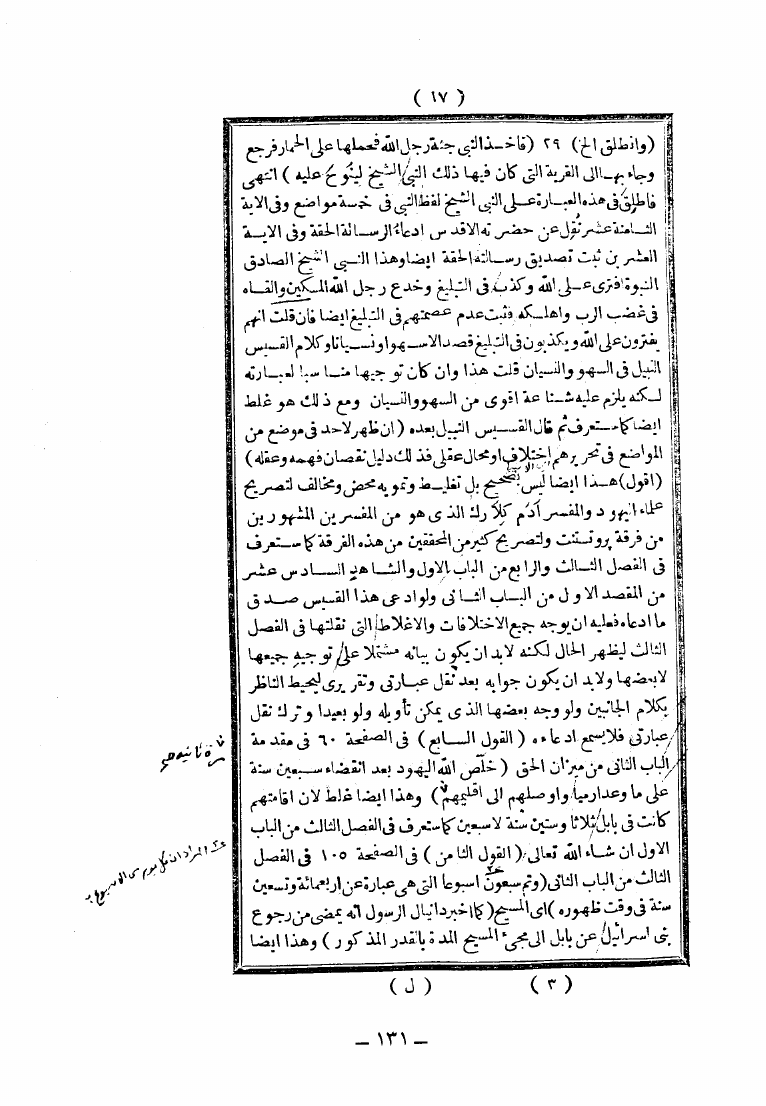 ( ١٧ )
(وانطلق الخ) ٢٩ (فاخذ النبى جثة رجل الله فحملها على الحمار فرجع
وجاء بها الى القرية التى كان فيها ذلك النبى الشيخ لينوح عليه) انتهى
فاطلق فى هذه العبارة على النبى الشيخ لفظ النبى فى خمسة مواضع وفى الاية
الثامنة عشر نقل عن حضرته الاقدس ادعاء الرسالة الحقة وفى الاية
العشرين ثبت تصديق رسالته الحقة ايضا وهذا النبى الشيخ الصادق
النبوة افترى على الله وكذب فى التبليغ وخدع رجل الله المسكين والقاه
فى غضب الرب واهلكه فثبت عدم عصمتهم فى التبليغ ايضا فان قلت انهم
يفترون على الله ويكذبون فى التبليغ قصدا لا سهوا ونسيانا وكلام القسيس
النبيل فى السهو والنسيان قلت هذا وان كان توجيها مناسبا لعبارته
لكنه يلزم عليه شناعة اقوى من السهو والنسيان ومع ذلك هو غلط
ايضا كما ستعرف ثم قال القسيس النبيل بعده (ان ظهر لاحد فى موضع من
المواضع فى تحريرهم اختلاف او محال عقلى فذلك دليل نقصان فهمه وعقله)
(اقول) هذا ايضا ليس بصحيح بل تغليط وتمويه محض ومخالف لتصريح
علماء اليهود والمفسر آدم كلارك الذى هو من المفسرين المشهورين
من فرقة پروتستنت ولتصريح كثير من المحققين من هذه الفرقة كما ستعرف
فى الفصل الثالث والرابع من الباب الاول والشاهد السادس عشر
من المقصد الاول من الباب الثانى ولو ادعى هذا القسيس صدق
ما ادعاه فعليه ان يوجه جميع الاختلافات والاغلاط التى نقلتها فى الفصل
الثالث ليظهر الحال لكنه لابد ان يكون بيانه مشتملا على توجيه جميعها
لا بعضها ولابد ان يكون جوابه بعد نقل عبارتى وتقريرى ليحيط الناظر
بكلام الجانبين ولو وجه بعضها الذى يمكن تأويله ولو بعيدا وترك نقل
عبارتى فلا يسمع ادعاءه (القول السابع) فى الصفحة ٦٠ فى مقدمة
الباب الثانى من ميزان الحق (خلّص الله اليهود بعد انقضاء سبعين سنة
على ما وعد ارميا واوصلهم الى اقليمهم) وهذا ايضا غلط لان اقامتهم
كانت فى بابل ثلاثا وستين سنة لا سبعين كما ستعرف فى الفصل الثالث من الباب
الاول ان شاء الله تعالى (القول الثامن) فى الصفحة ١٠٥ فى الفصل
الثالث من الباب الثانى (وتم سبعون اسبوعا التى هى عبارة عن اربعمائة وتسعين
سنة فى وقت ظهوره) اى المسيح (كما اخبر دانيال الرسول انه يمضى من رجوع
بنى اسرائيل عن بابل الى مجئ المسيح المدة بالقدر المذكور) وهذا ايضا
مرة ثانية
المراد ان كل يوم من الاسبوع
( ٣ ) ( ل )
– ١٣١ –